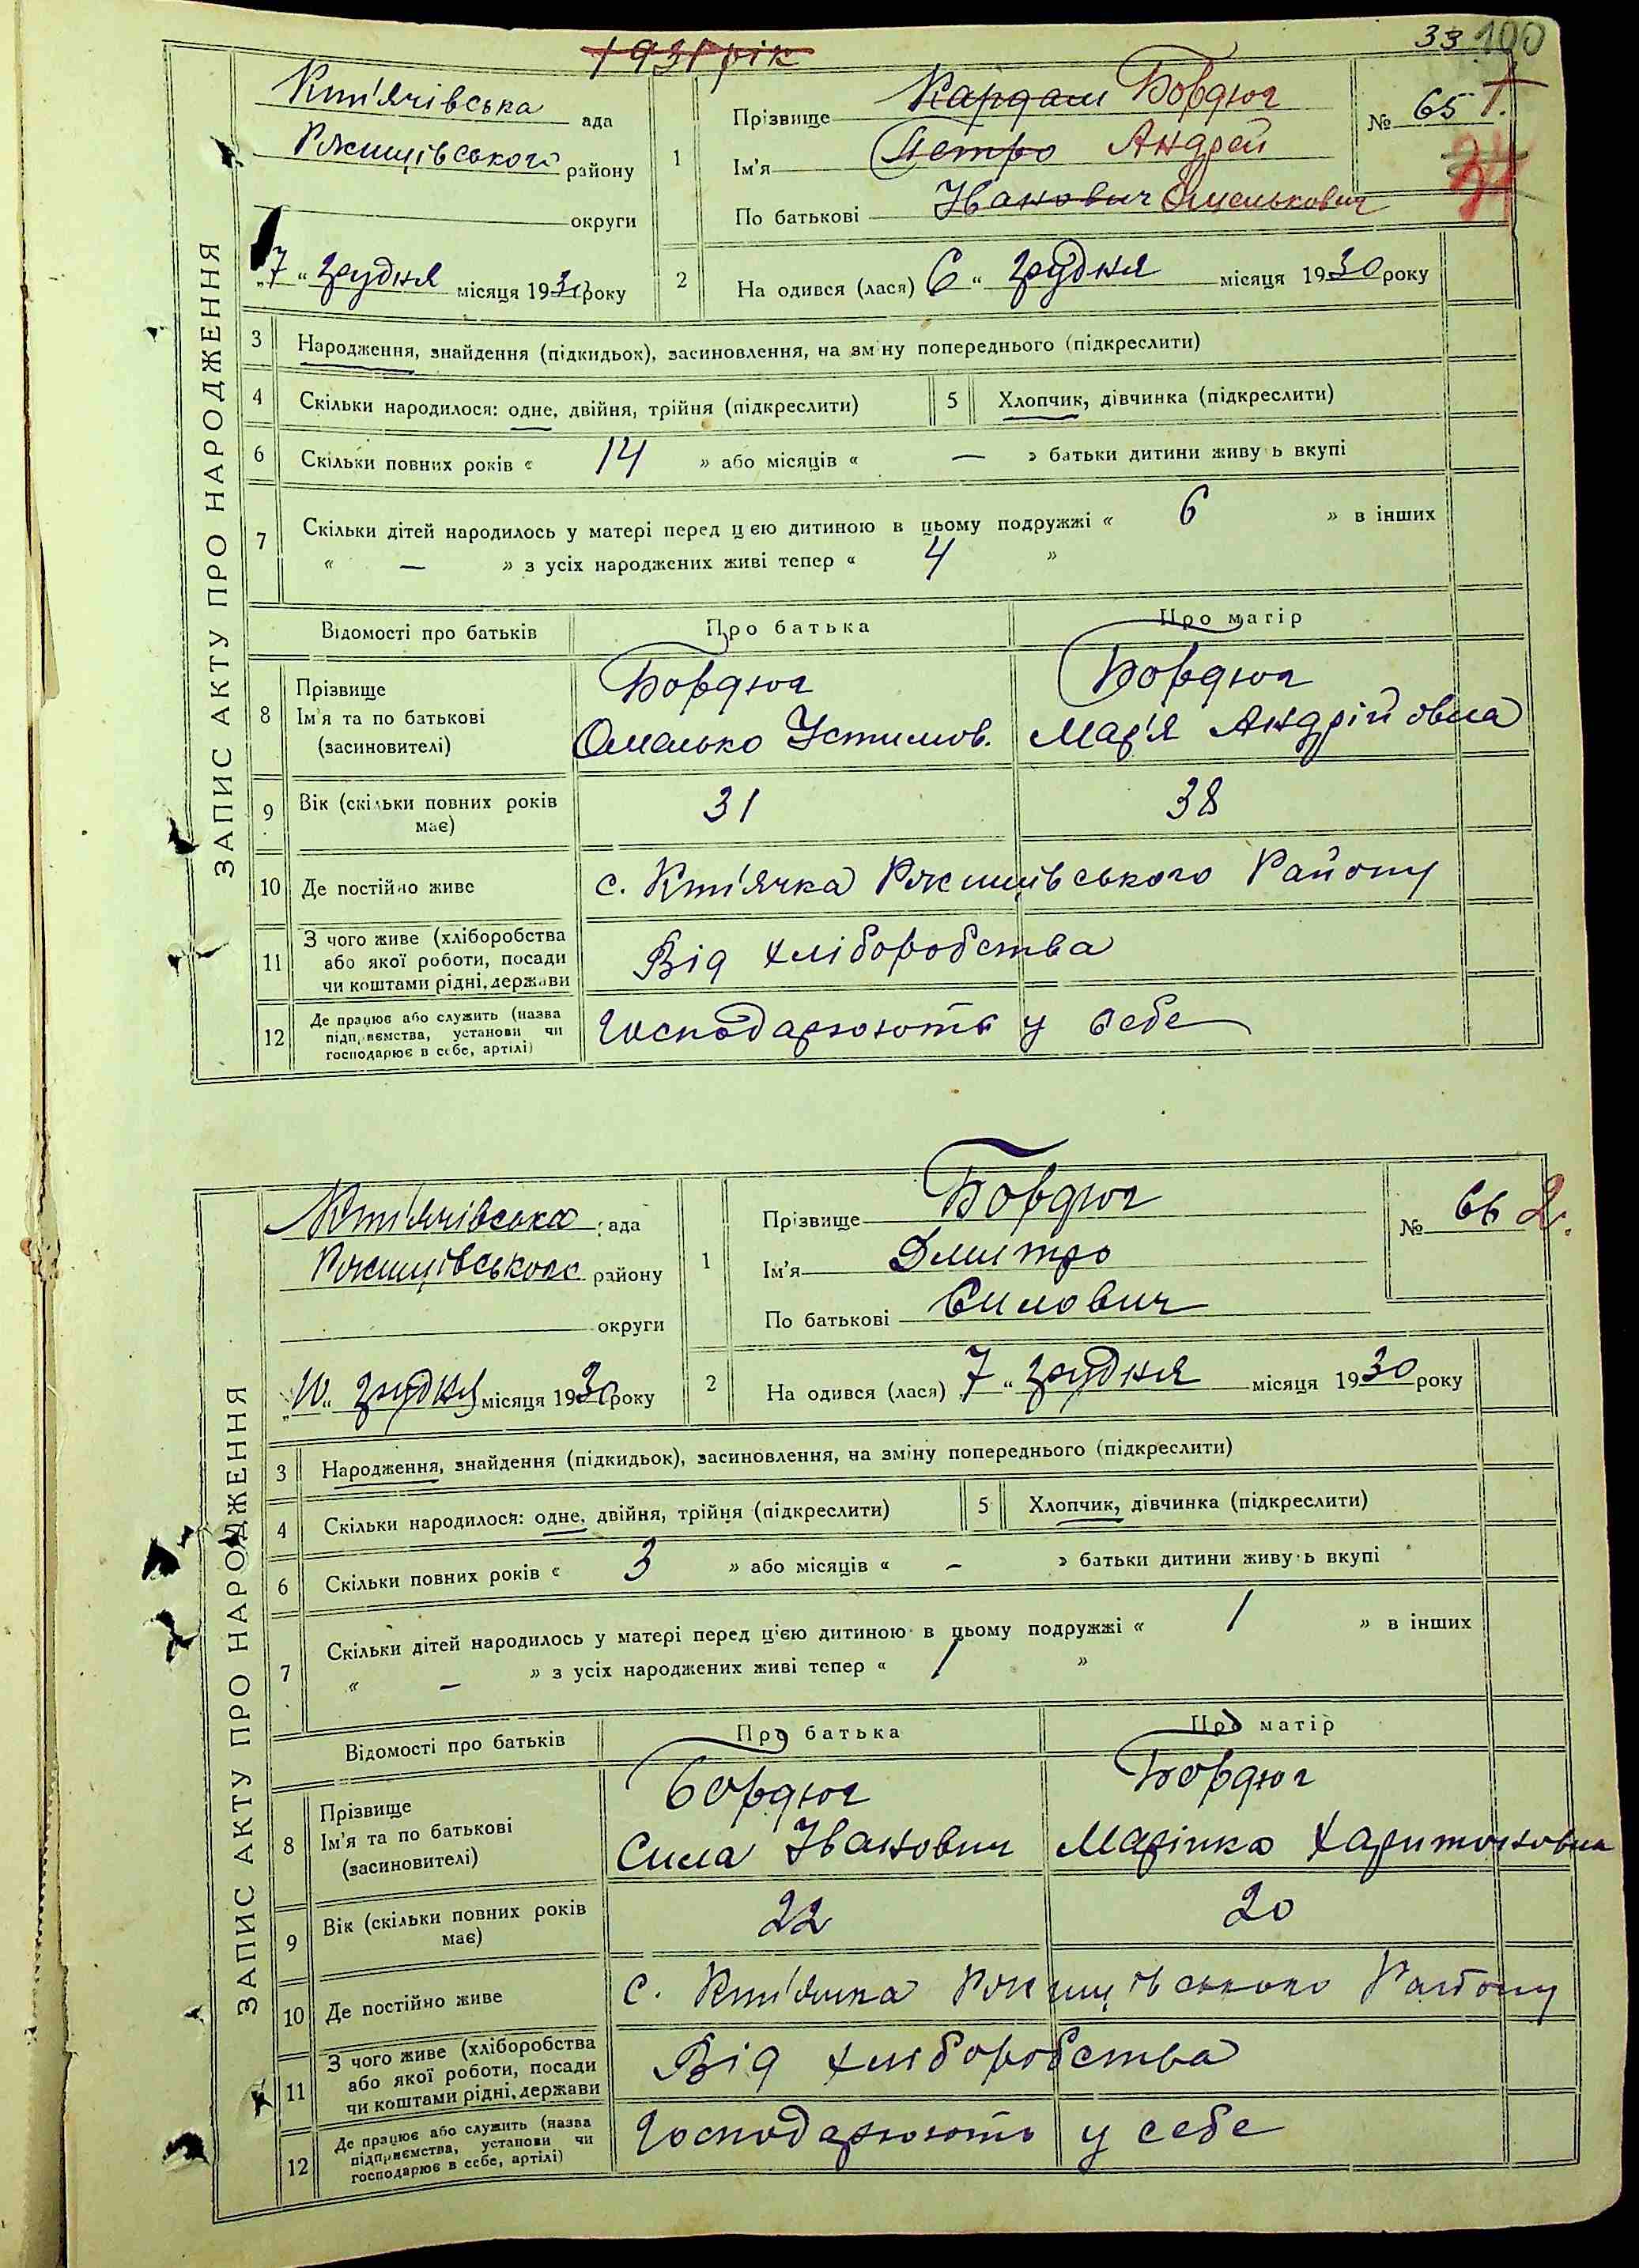 1931 рік
33 100
Кип'ячівська ада
Ржищівського району
округи
"7" грудня місяця 1930 року
1
Прізвище Кардаш Бовдюг
Ім'я Петро Андрей
По батькові Іванович Омелькович
№ 65 1.
2
На одився (лася) 6 " грудня місяця 1930 року
ЗАПИС АКТУ ПРО НАРОДЖЕННЯ
3 Народження, знайдення (підкидьок), засиновлення, на зміну попереднього (підкреслити)
4 Скільки народилося: одне, двійня, трійня (підкреслити) 5 Хлопчик, дівчинка (підкреслити)
6 Скільки повних років « 14 » або місяців « — » батьки дитини живу ь вкупі
7 Скільки дітей народилось у матері перед цією дитиною в цьому подружжі « 6 » в інших
« — » з усіх народжених живі тепер « 4 »
Відомості про батьків Про батька Про матір
8 Прізвище Бовдюг Бовдюг
Ім'я та по батькові Омелько Устимов. Мар'я Андрійовна
(засиновителі)
9 Вік (скільки повних років має) 31 38
10 Де постійно живе с. Кип'ячка Ржищівського Району
11 З чого живе (хліборобства
або якої роботи, посади Від хліборобства
чи коштами рідні, держави
12 Де працює або служить (назва
підприємства, установи чи Господарюють у себе
господарює в себе, артілі)
Кип'ячівська ада
Ржищівського району
округи
"10" грудня місяця 1930 року
1
Прізвище Бовдюг
Ім'я Дмитро
По батькові Силович
№ 66 2.
2
На одився (лася) 7 " грудня місяця 1930 року
ЗАПИС АКТУ ПРО НАРОДЖЕННЯ
3 Народження, знайдення (підкидьок), засиновлення, на зміну попереднього (підкреслити)
4 Скільки народилося: одне, двійня, трійня (підкреслити) 5 Хлопчик, дівчинка (підкреслити)
6 Скільки повних років « 3 » або місяців « — » батьки дитини живу ь вкупі
7 Скільки дітей народилось у матері перед цією дитиною в цьому подружжі « 1 » в інших
« — » з усіх народжених живі тепер « 1 »
Відомості про батьків Про батька Про матір
8 Прізвище Бовдюг Бовдюг
Ім'я та по батькові Сила Іванович Марінка Харитоновна
(засиновителі)
9 Вік (скільки повних років має) 22 20
10 Де постійно живе с. Кип'ячка Ржищівського Району
11 З чого живе (хліборобства
або якої роботи, посади Від хліборобства
чи коштами рідні, держави
12 Де працює або служить (назва
підприємства, установи чи Господарюють у себе
господарює в себе, артілі)